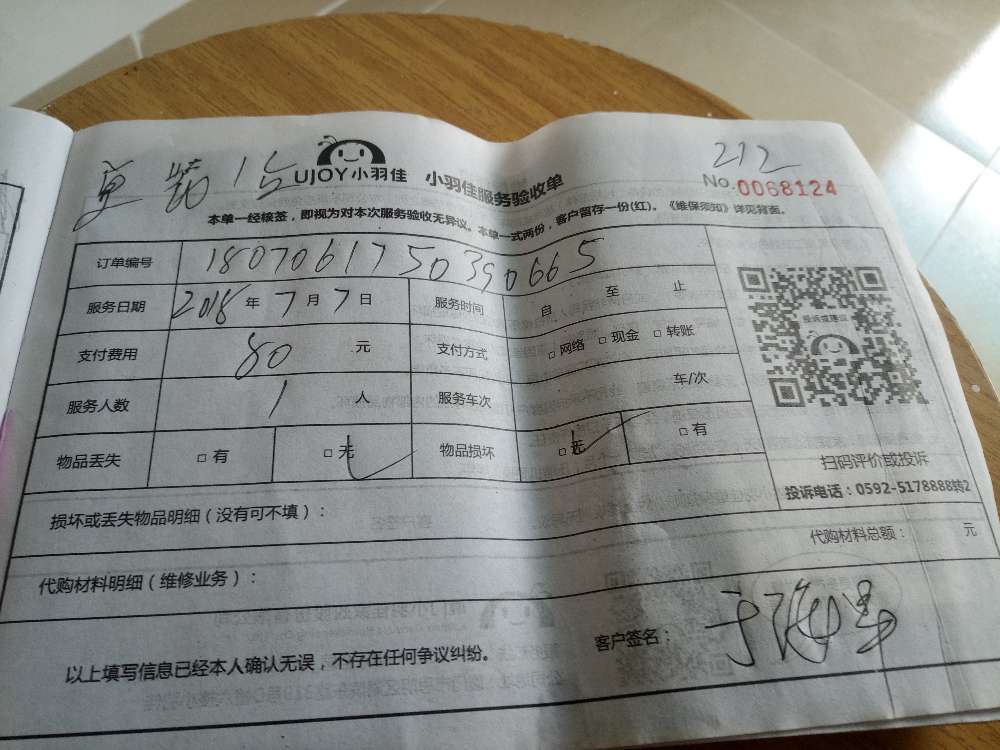 1台
212
UJOY小羽佳 小羽佳服务验收单
No.0068124
本单一经核签，即视为对本次服务验收无异议。本单一式两份，客户留存一份(红)。《维保须知》详见背面。
订单编号 1807061750390665
服务日期 2018年7月7日 服务时间 自 至 止
支付费用 80 元 支付方式 □网络 □现金 □转账
投诉或建议
服务人数 1 人 服务车次 车/次
物品丢失 □有 □无 物品损坏 □无 □有
扫码评价或投诉
投诉电话：0592-5178888转2
损坏或丢失物品明细（没有可不填）：
代购材料总额： 元
代购材料明细（维修业务）：
客户签名：
以上填写信息已经本人确认无误，不存在任何争议纠纷。